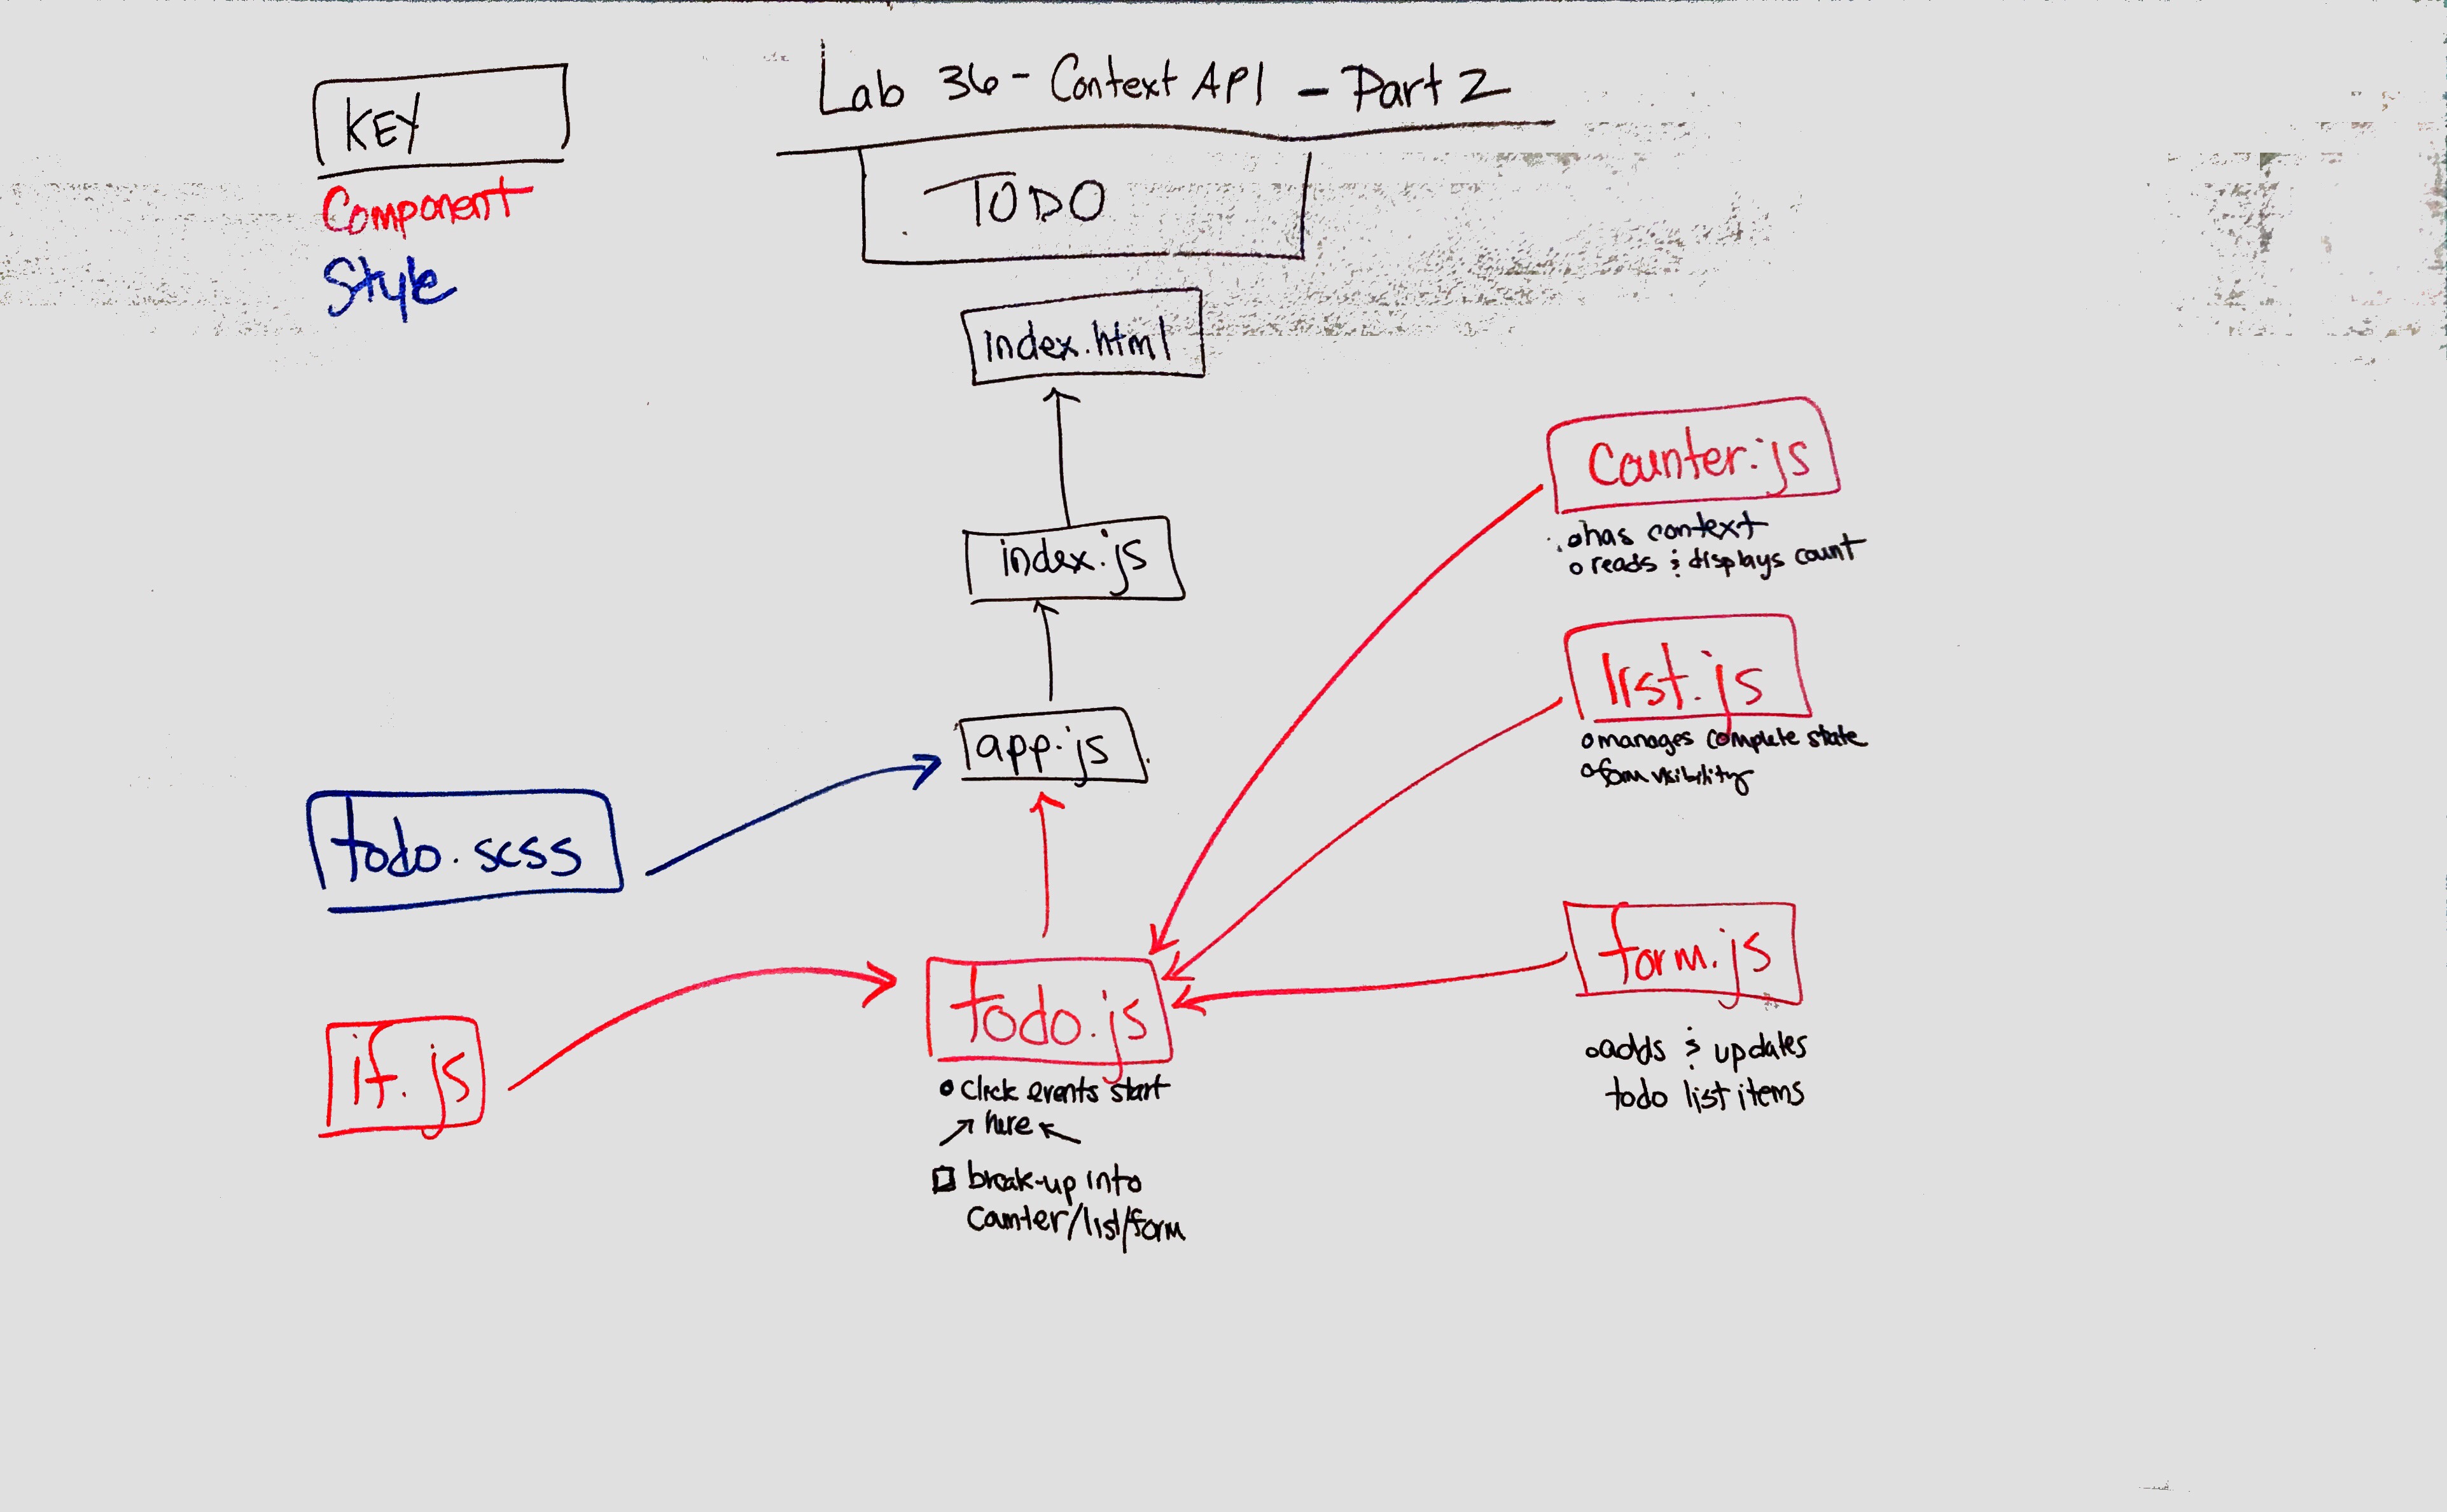 Lab 36 - Context API - Part 2
KEY
Component
Style
TODO
index.html
index.js
app.js
todo.scss
if.js
todo.js
• click events start
here
break-up into
Counter/list/form
Counter.js
o has context
o reads & displays count
list.js
o manages complete state
o form visibility
form.js
o adds & updates
todo list items